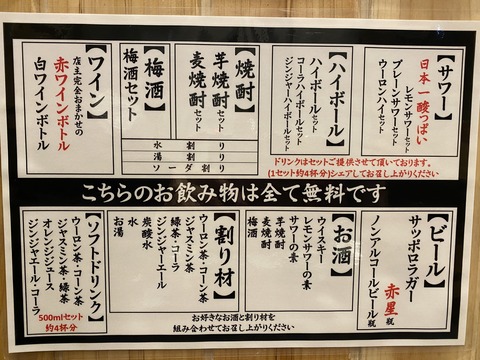 【サワー】
日本一酸っぱい
レモンサワーセット
プレーンサワーセット
ウーロンハイセット
【ハイボール】
ハイボールセット
コーラハイボールセット
ジンジャーハイボールセット
ドリンクはセットご提供させて頂いております。
(1セット約4杯分)シェアしてお召し上がりください
【焼酎】
芋焼酎セット
麦焼酎セット
【梅酒】
梅酒セット
水割り
湯割り
ソーダ割り
【ワイン】
店主完全おまかせの
赤ワインボトル
白ワインボトル
こちらのお飲み物は全て無料です
【ビール】
サッポロラガー赤星 瓶
ノンアルコールビール 瓶
【お酒】
ウイスキー
レモンサワーの素
サワーの素
芋焼酎
麦焼酎
梅酒
【割り材】
ウーロン茶・コーン茶
ジャスミン茶
緑茶・コーラ
ジンジャーエール
炭酸水
水
お湯
お好きなお酒と割り材を
組み合わせてお召し上がりください
【ソフトドリンク】
ウーロン茶・コーン茶
ジャスミン茶・緑茶
オレンジジュース
ジンジャエール・コーラ
500mlセット
約4杯分